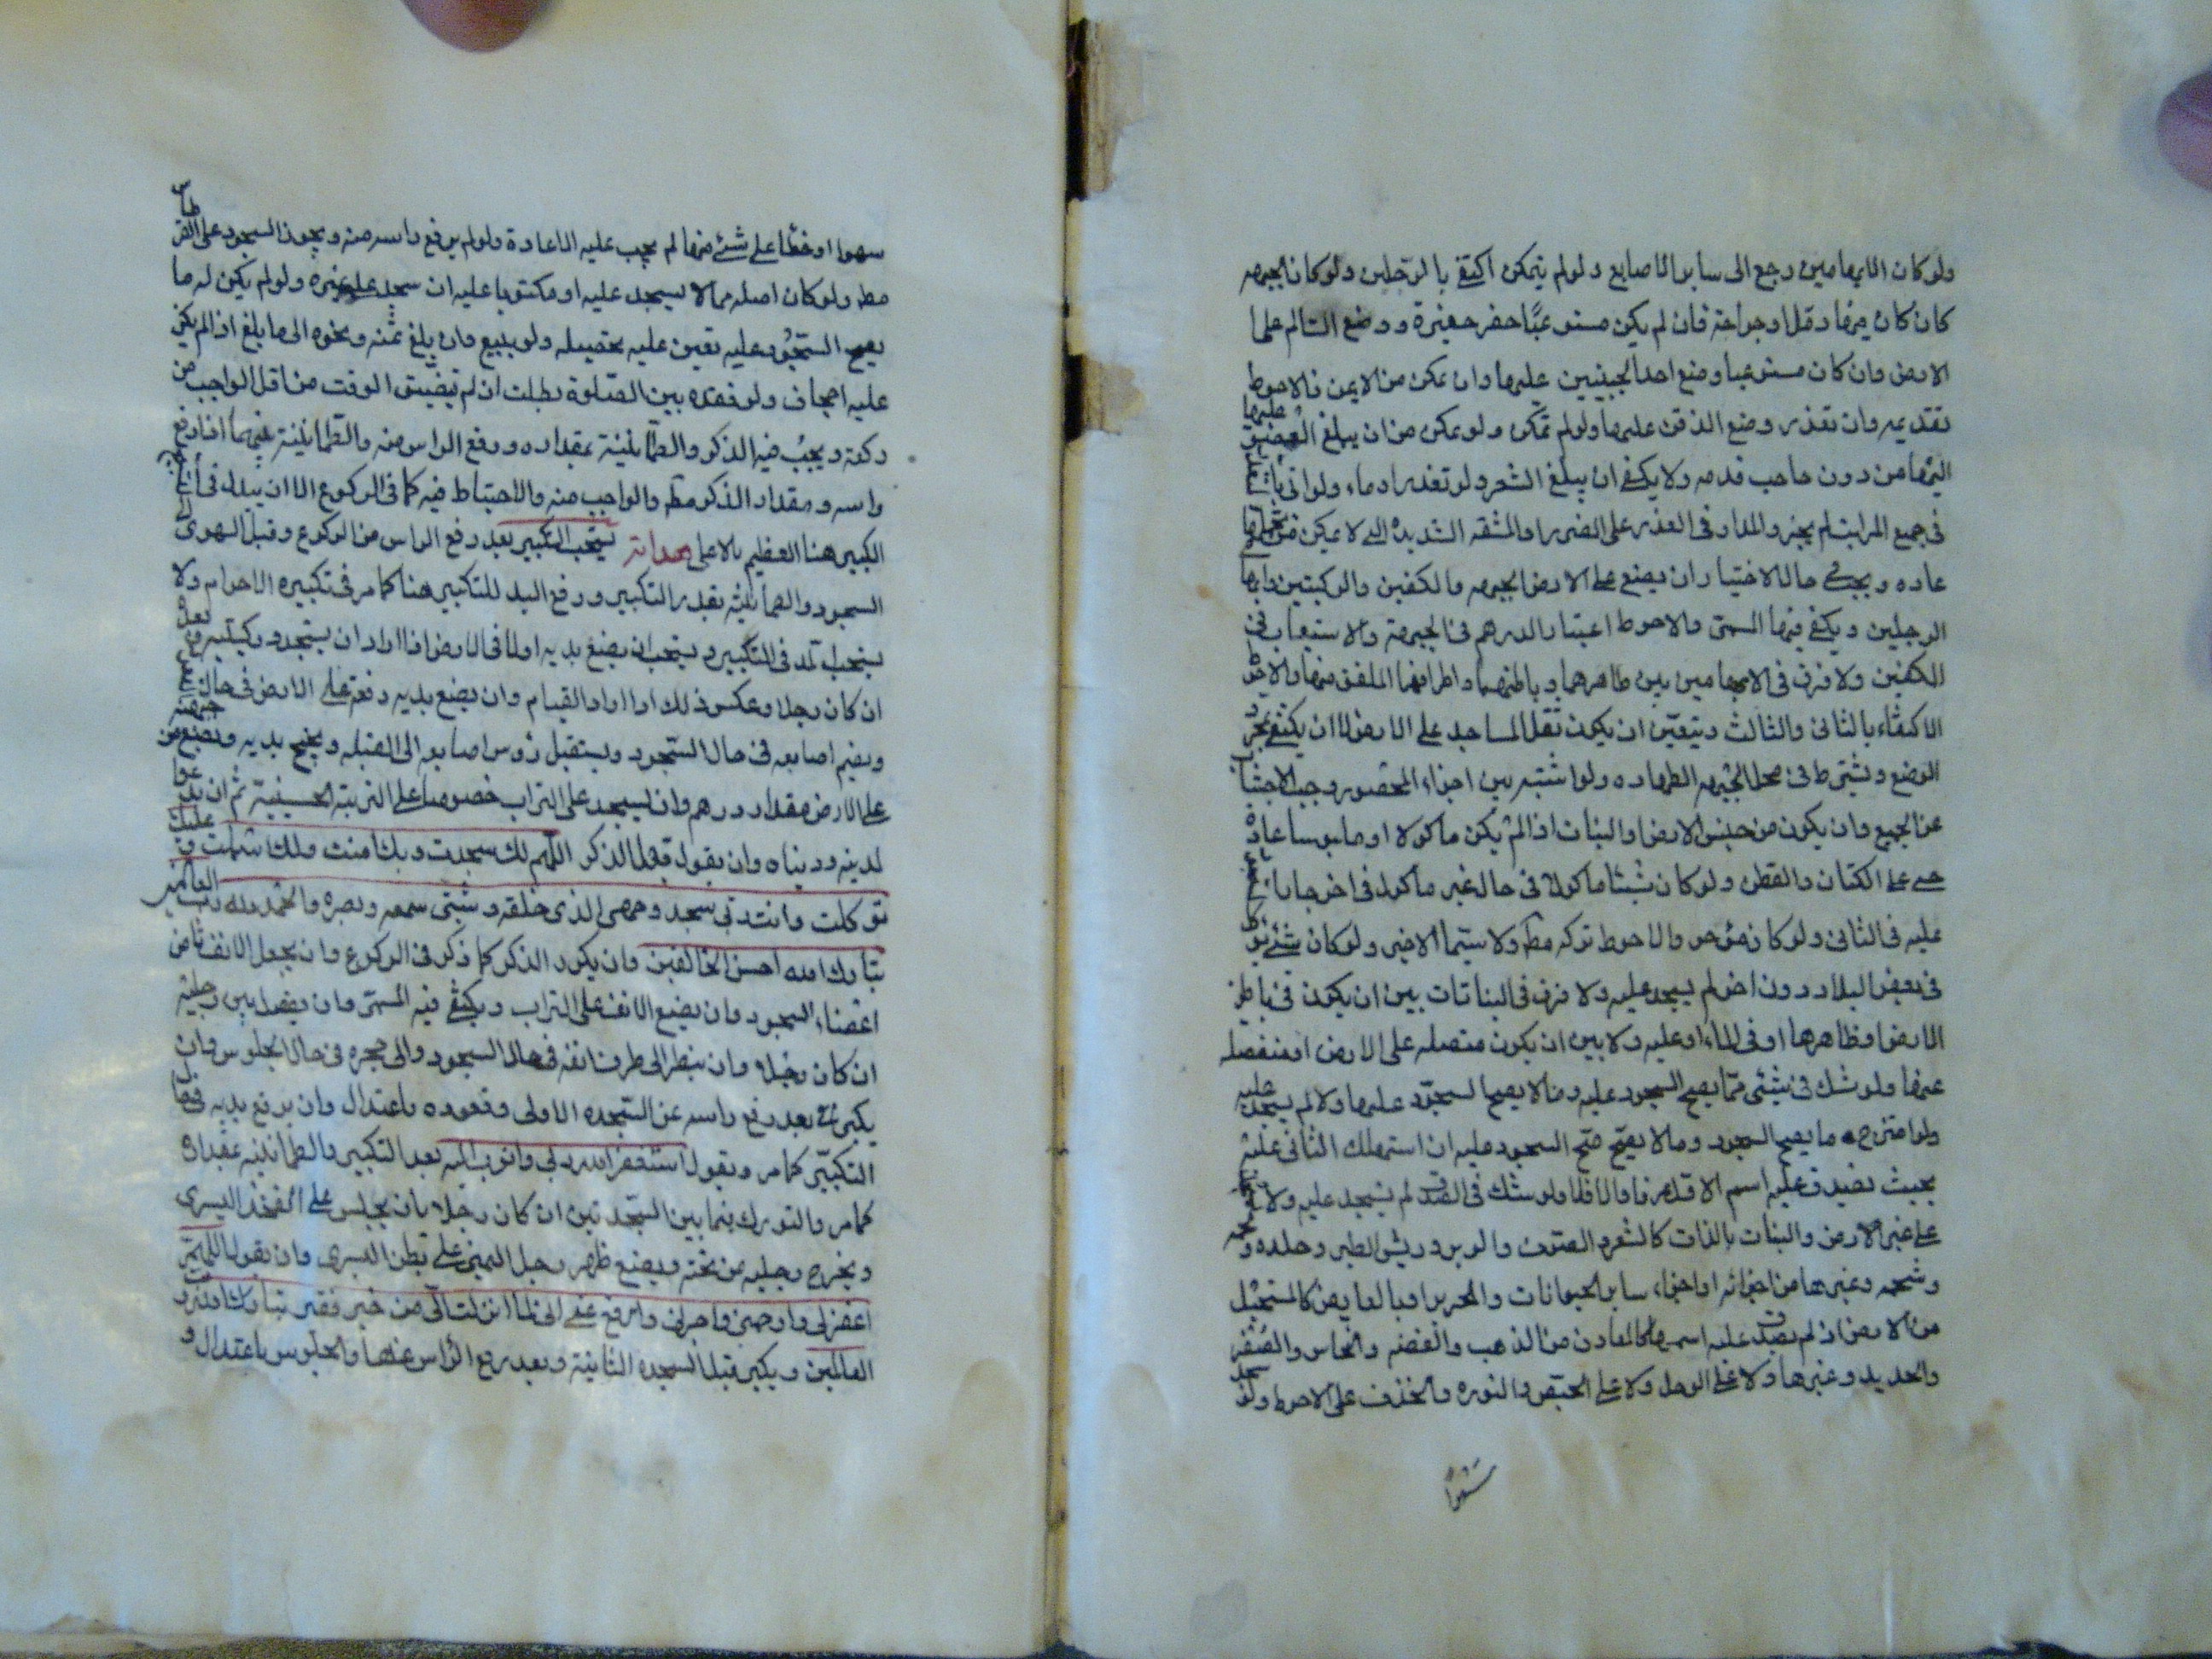 ولو كان الابهامين رجع الى ساير الاصابع ولو لم يتمكن اكتفى بالرجلين ولو كان بالجبهة
كان كان بها دمل او جراحة فان لم يكن مستوعبا حفر حفيرة ووضع السالم على
الارض وان كان مستوعبا وضع احد الجبينين عليها وان تمكن من الايمن فالاحوط
تقديمه وان تعذر وضع الذقن عليها ولو لم تمكن ولو تمكن من ان يبلغ
اليها من دون حاجب قدمه ولا يكفى ان يبلغ الشعر ولو تعذر ادماء ولو اتى
فى جميع المراتب لم يجز والمدار فى العذر على الضرر او المشقه الشديده التى لا يمكن تحملها
عاده ويجب فى حال الاختيار ان يضع على الارض الجبهه والكفين والركبتين وابهامى
الرجلين ويكفى فيها المسمى والاحوط اعتبار الدرهم فى الجبهة والاستيعاب فى
الكفين ولا فرق فى الابهامين بين ظاهرهما وباطنهما واطرافها الملفق منها والاحوط
الاكتفاء بالثانى والثالث ويتعين ان يكون ثقل المساجد على الارض لا ان يكتفى بمجرد
الوضع ويشترط فى محل الجبهه الطهاره ولو اشتبه بين اجزاء المحصور وجب الاجتناب
عن الجميع وان يكون من جنس الارض او النبات اذا لم يكن ماكولا او ملبوسا عادة
حتى على الكتان والقطن ولو كان شيئا ماكولا فى حال غير ماكول فى اخر جاز
عليه فى الثانى ولو كان والاحوط تركه مط ولا سيما الاخير ولو كان شئ يؤكل
فى بعض البلاد دون اخر لم يسجد عليه ولا فرق فى النباتات بين ان يكون فى باطن
الارض او ظاهرها او فى الماء او عليه ولا بين ان يكون متصله على الارض او منفصله
عنها ولو شك فى شئ مما يصح السجود عليه وما لا يصح السجود عليها ولا لم يسجد عليه
ولو امتزج ما يصح السجود وما لا يصح صح السجود عليه ان استهلك الثانى
بحيث يصدق عليه اسم الاول عرفا والا فلا ولو شك فى الصدق لم يسجد عليه ولا
على غير الارض والنبات بالذات كالشعر والصوف والوبر وريش الطير وجلده
وشحمه وغيرها من اجزائه او اجزاء ساير الحيوانات والحرير او بالعارض كالمستحيل
من الارض ان لم يصدق عليه اسمها كالمعادن من الذهب والفضه والنحاس والصفر
والحديد وغيرها ولا على الوحل ولا على الجص والنوره والخذف على الاحوط ولو سجد
سهوا
سهوا او خطا على شئ منها لم يجب عليه الاعادة ولو لم يرفع راسه منه ويجوز السجود على القرطاس
مط ولو كان اصله مما لا يسجد عليه او مكتوبا عليه ان سجد على غيره ولو لم يكن له ما
يصح السجود عليه تعين عليه تحصيله ولو ببيع وان بلغ ثمنه ونحوه الى ما بلغ اذا لم يكن
عليه اجحاف ولو فقده بين الصلوة بطلت ان لم تضيق الوقت من اقل الواجب من
ركعة ويجب فيه الذكر والطمانينة بمقداره ورفع الراس منه والطمانينة فيهما اذا رفع
راسه ومقدار الذكر مط والواجب منه والاحتياط فيه كما فى الركوع الا ان يبدل فى
الكبير هنا العظيم بالاعلى يستحب التكبير بعد رفع الراس من الركوع وقبل الهوى الى
السجود والطمانينه بقدر التكبير ورفع اليد للتكبير هنا كما مر فى تكبيره الاحرام ولا
يستحب المد فى التكبير ويستحب ان يضع يديه اولا فى الارض اذا اراد ان يسجد وركبتيه بعد
ان كان رجلا وعكس ذلك اذا اراد القيام وان يضع يديه دفعة على الارض فى حال
ويضم اصابعه فى حال السجود ويستقبل رؤوس اصابعه الى القبله ويجنح بديه ويضع من جبهته
على الارض مقدار درهم وان يسجد على التراب خصوصا على التربته الحسينية ثم ان يدعوا
لدينه ودنياه وان يقول قبل الذكر اللهم لك سجدت وبك امنت ولك اسلمت وعليك
توكلت وانت ربى سجد وجهى الذى خلقه وشق سمعه وبصره والحمد لله رب العالمين
تبارك الله احسن الخالقين وان يكرر الذكر كما ذكر فى الركوع وان يجعل الانف ثامن
اعضاء السجود وان يضع الانف على التراب ويكفى فيه المسمى وان يفصل بين رجليه
ان كان رجلا وان ينظر الى طرف انفه فى حال السجود والى حجره فى حال الجلوس وان
يكبر بعد رفع راسه عن السجده الاولى وقعوده باعتدال وان يرفع يديه فى حال
التكبير كما مر ويقول استغفر الله ربى واتوب اليه بعد التكبير والطمانينه بمقداره
كما مر والتورك بينما بين السجدتين ان كان رجلا بان يجلس على الفخذ اليسرى
ويخرج رجليه من تحته ويضع ظهر رجل اليمنى على بطن اليسرى وان يقول اللهم
اغفر لى وارحمنى واجرنى وادفع عنى انى لما انزلت الى من خير فقير تبارك الله رب
العالمين ويكبر قبل السجده الثانية وبعد رفع الرأس عنها والجلوس باعتدال و